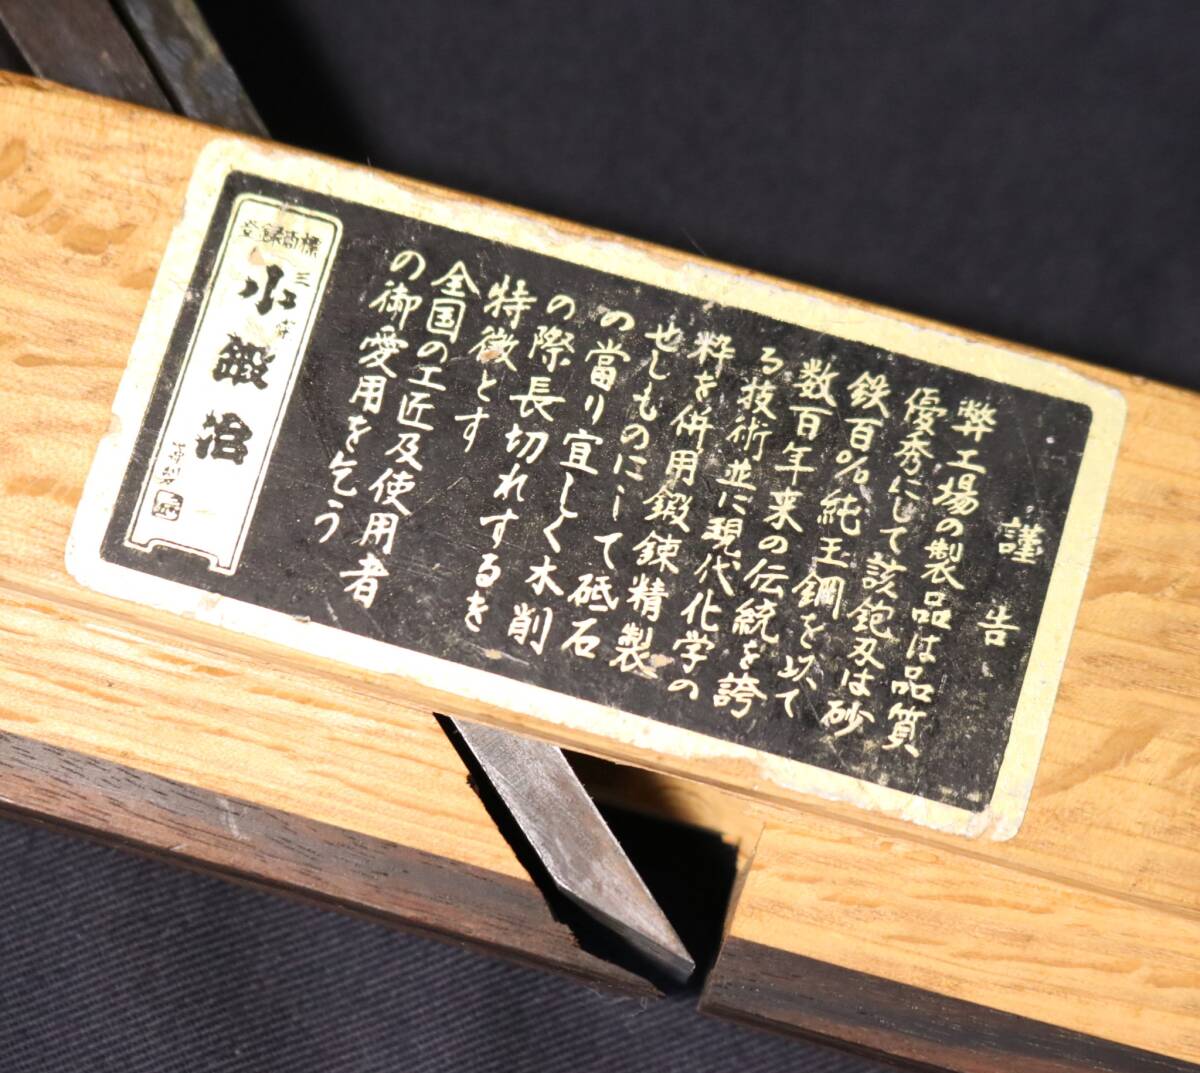 謹告
弊工場の製品は品質
優秀にして該鉋刄は砂
鉄百%純玉鋼を以て
数百年来の伝統を誇
る技術並に現代化学の
粋を併用鍛錬精製
せしものにして砥石
の當り宜しく木削
の際長切れするを
特徴とす
全国の工匠及使用者
の御愛用を乞う
登録商標
三
小鍛冶